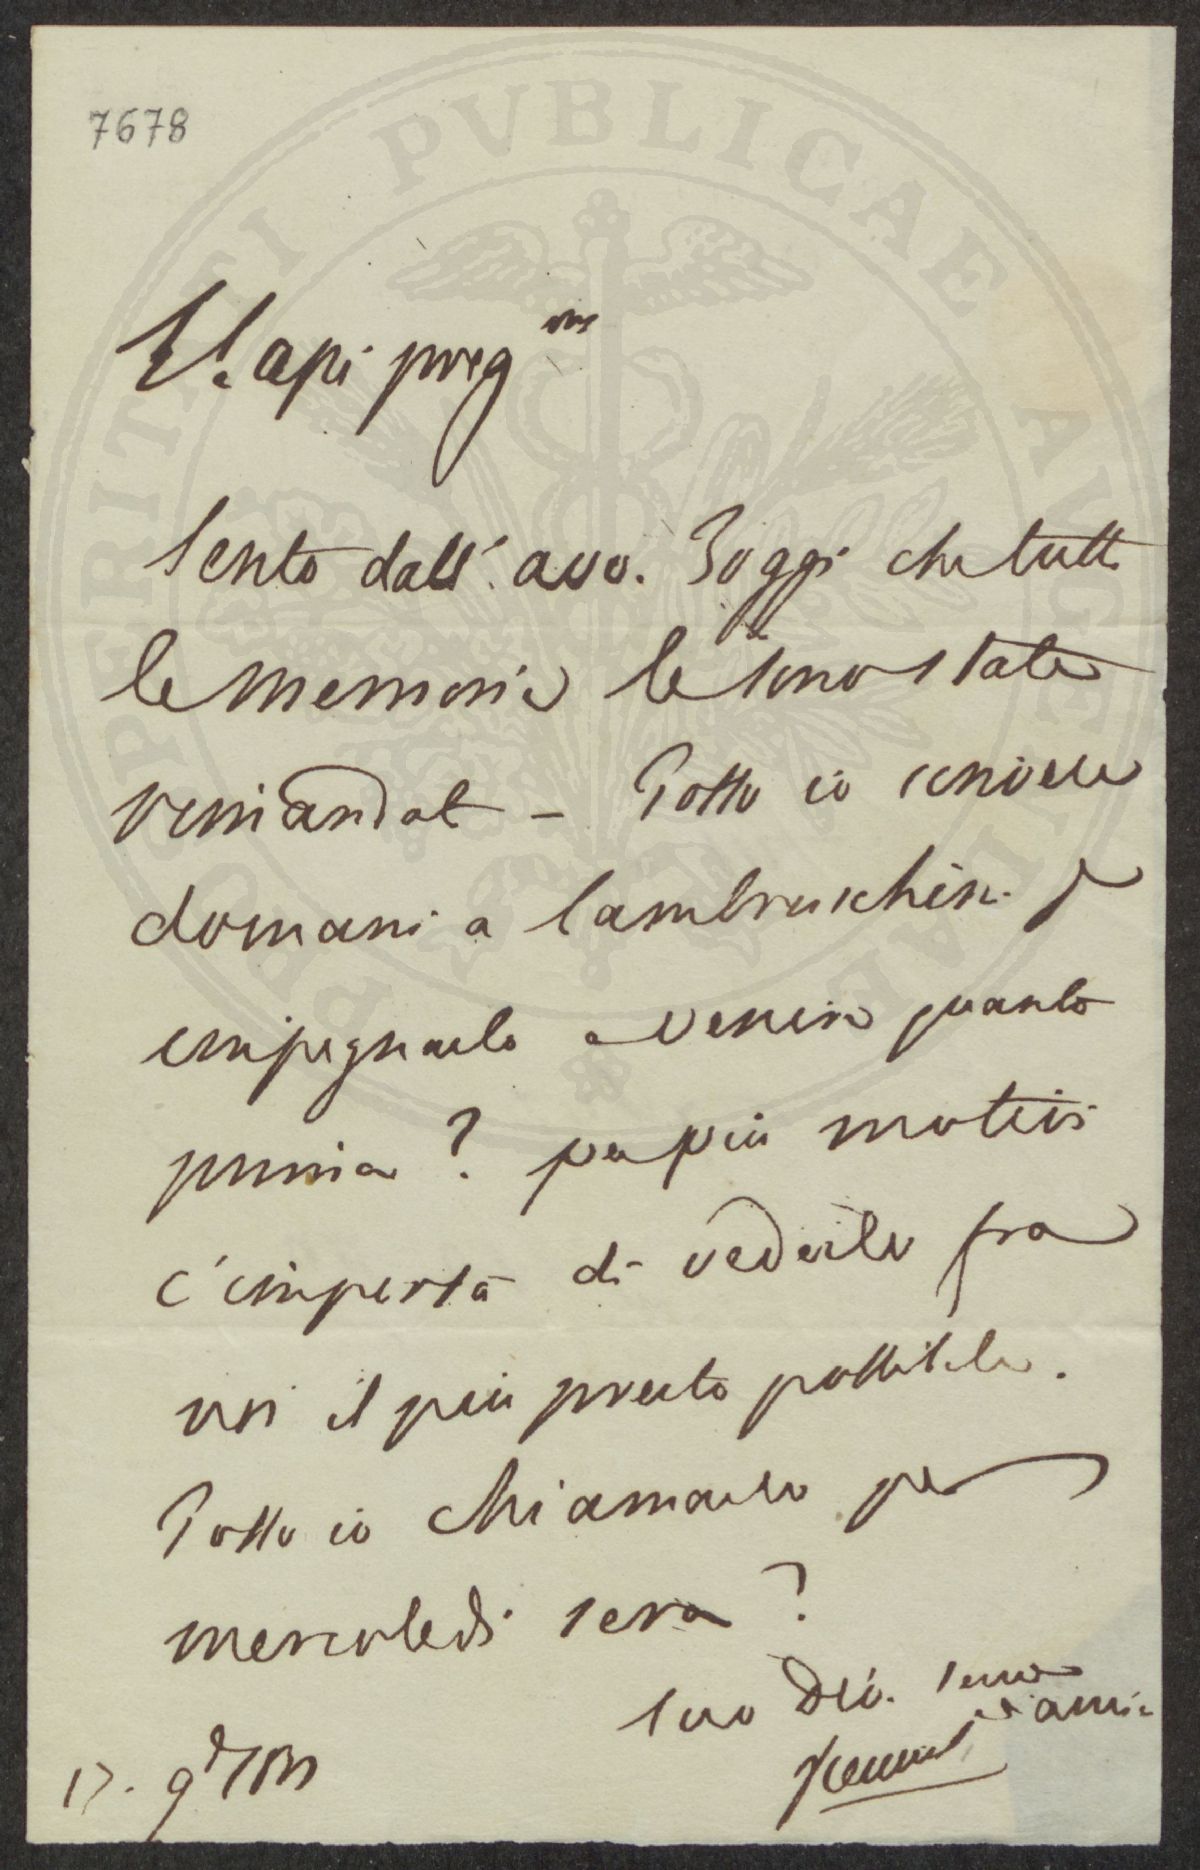 7678
PROSPERITATI PVBLICAE AVGENDAE
Sento dall' avv. Poggi che tutte
le memorie le sono state
rimandate – Posso io scrivere
domani a Lambruschini p
impegnarlo a venire quanto
prima? per più motivi
c'importa di vederlo fra
noi il più presto possibile.
Posso io chiamarlo per
mercoledì sera?
suo Dev. servo
e amic
17. 9